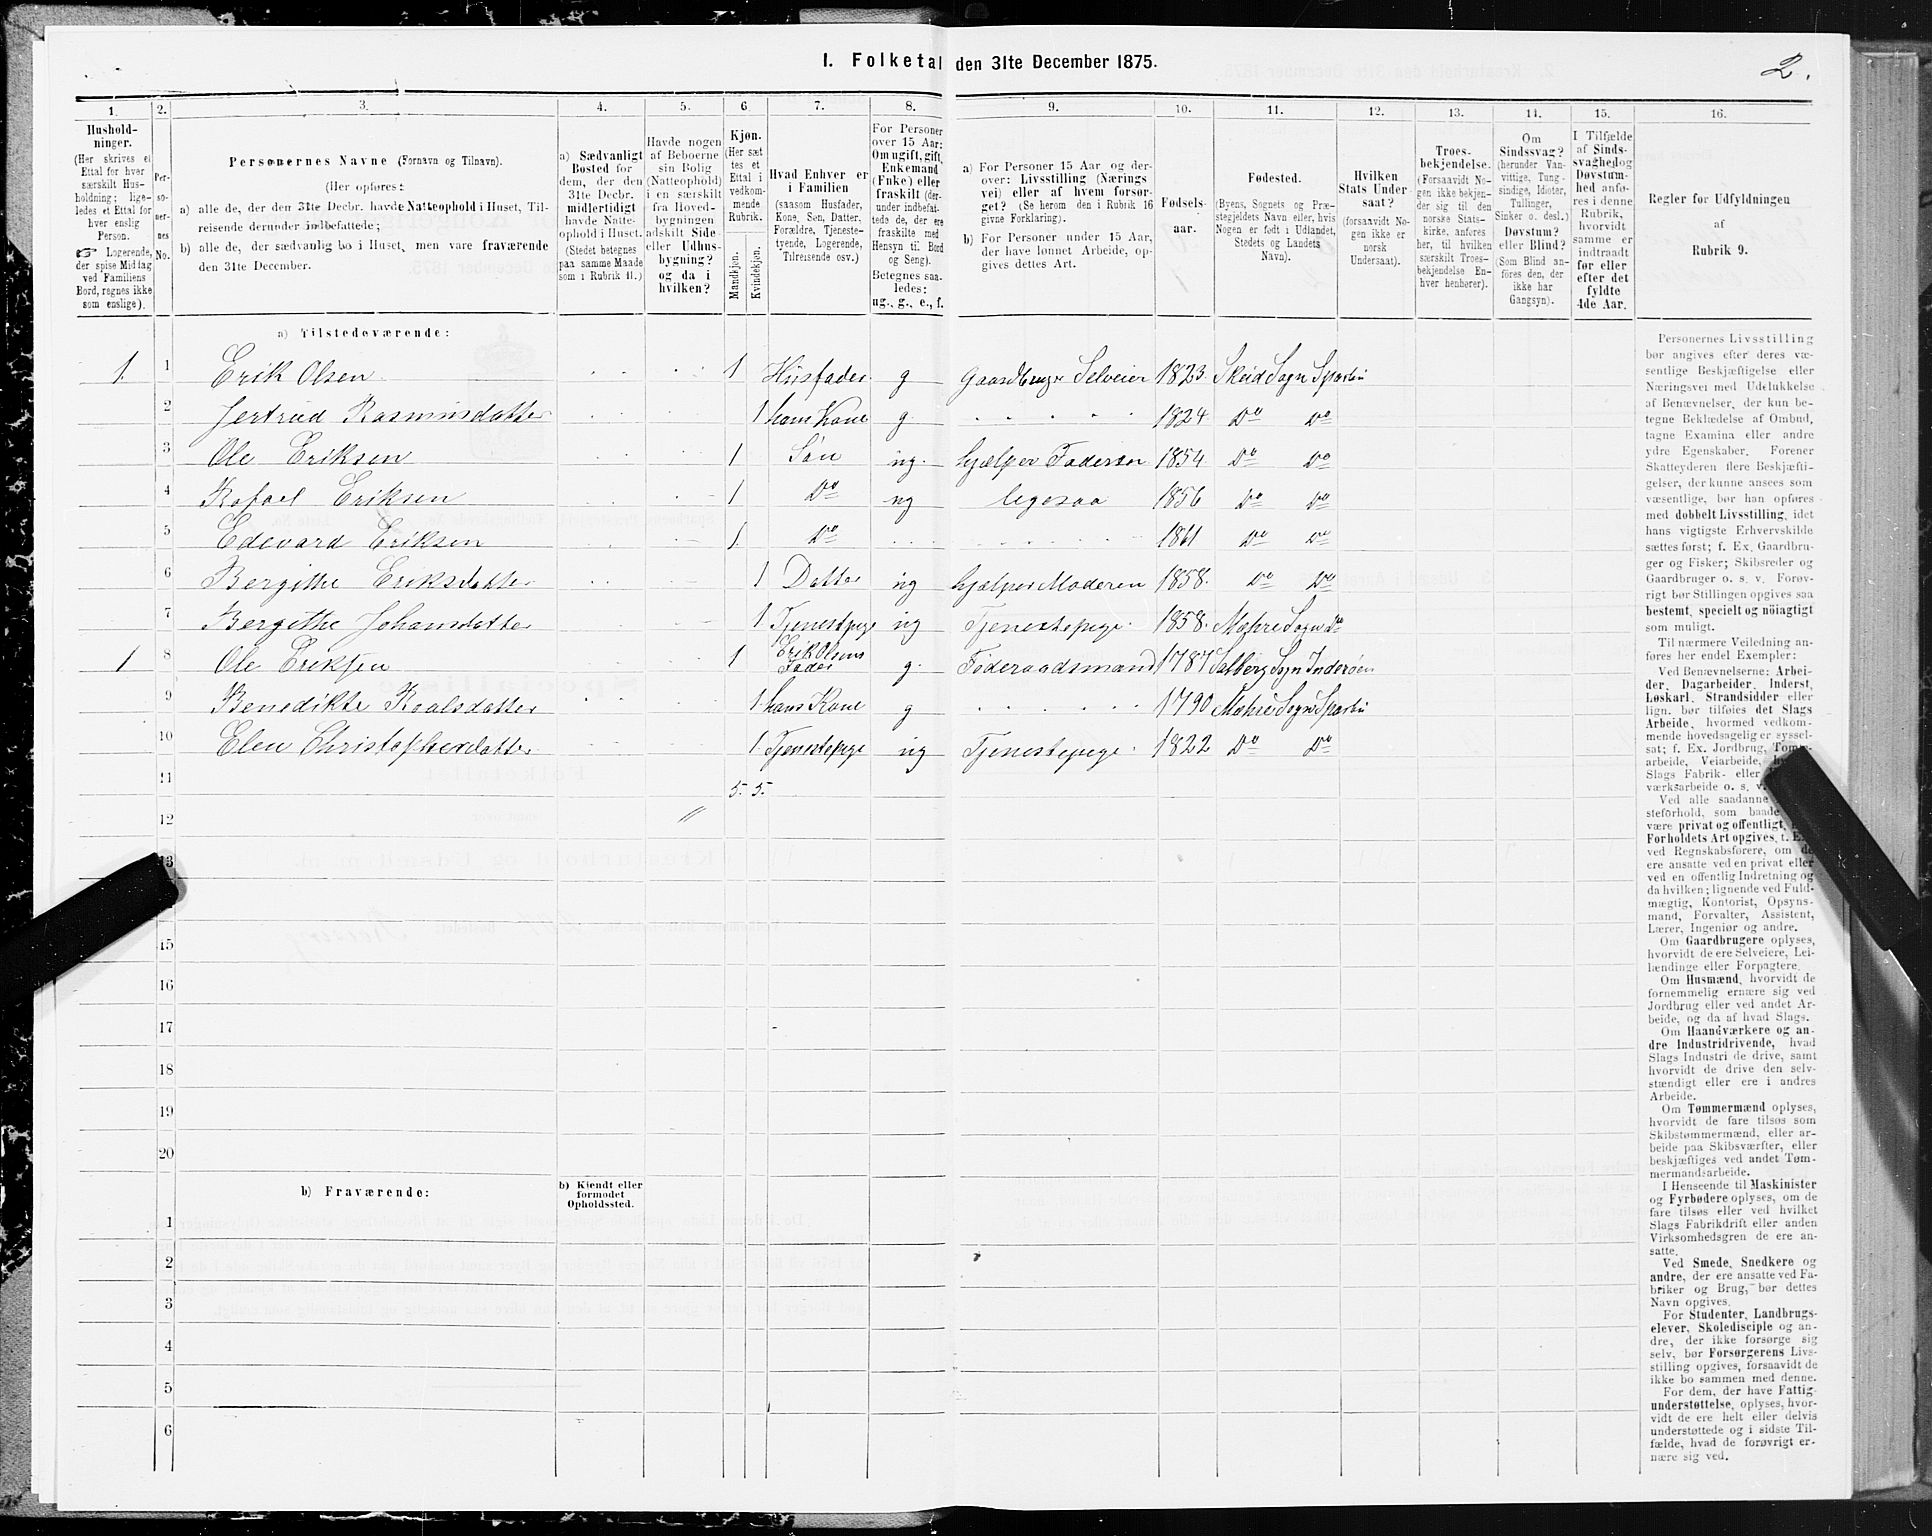 I. Folketal den 31te December 1875.
2.
1. 2. 3. 4. 5. 6. 7. 8. 9. 10. 11. 12. 13. 14. 15. 16.
Hushold-
ninger.
(Her skrives et
Ettal for hver
særskilt Hus-
holdning; lige-
ledes et Ettal for
hver enslig
Person.
☞ Logerende,
der spise Middag
ved Familiens
Bord, regnes ikke
som enslige).
Per-
so-
ner-
nes
No.
Personernes Navne (Fornavn og Tilnavn).
(Her opføres:
a) alle de, der den 31te Decbr. havde Natteophold i Huset, Til-
reisende derunder indbefattede;
b) alle de, der sædvanlig bo i Huset, men vare fraværende
den 31te December.
a) Sædvanligt
Bosted for
dem, der den
31te Decbr.
midlertidigt
havde Natte-
ophold i Huset.
(Stedet betegnes
paa samme Maade
som i Rubrik 11.)
Havde nogen
af Beboerne
sin Bolig
(Natteophold)
i en særskilt
fra Hoved-
bygningen
adskilt Side-
eller Udhus-
bygning?
og da i
hvilken?
Kjøn.
(Her sæt
tes et
Ettal i
vedkom-
mende
Rubrik.
Mandkjøn.
Kvindekjøn.
Hvad Enhver er
i Familien
(saasom Husfader,
Kone, Søn, Datter,
Forældre, Tjeneste-
tyende, Logerende,
Tilreisende osv.)
For Personer
over 15 Aar:
Om ugift, gift,
Enkemand
(Enke) eller
fraskilt (der-
under indbefat-
tede de, der ere
fraskilte med
Hensyn til Bord
og Seng).
Betegnes saa-
ledes:
ug., g., e., f.
a) For Personer 15 Aar og der-
over: Livsstilling (Nærings
vei) eller af hvem forsør-
get? (Se herom den i Rubrik 16
givne Forklaring).
b) For Personer under 15 Aar,
der have lønnet Arbeide, op-
gives dettes Art.
Fødsels-
aar.
Fødested.
(Byens, Sognets og Præ-
stegjeldets Navn eller, hvis
Nogen er født i Udlandet,
Stedets og Landets
Navn).
Hvilken
Stats Under-
saat?
(forsaavidt No-
gen ikke er
norsk
Undersaat).
Troes-
bekjendelse.
(Forsaavidt No-
gen ikke bekjen-
der sig til den
norske Stats-
kirke, anføres
her, til hvilken
særskilt Troes-
bekjendelse En-
hver henhører).
Om
Sindssvag?
(herunder Van-
vittige, Tung-
sindige, Idioter,
Tullinger,
Sinker o. desl.)
Døvstum?
eller Blind?
(Som Blind an-
føres den, der
ikke har
Gangsyn).
I Tilfælde
af Sinds-
svaghed og
Døvstum-
hed anfø-
res i denne
Rubrik,
hvorvidt
samme er
indtraadt
før eller
efter det
fyldte
4de Aar.
Regler for Udfyldningen
af
Rubrik 9.
a) Tilstedeværende:
1 1 Erik Olsen 1 Husfader g Gaardbruger Selveier 1823 Skeid Sogn Sparbu
2 Jertrud Rasmusdatter 1 hans Kone g 1824 Do Do
3 Ole Eriksen 1 Søn ug. hjælper Faderen 1854 Do Do
4 Rafael Eriksen 1 Do ug ligesaa 1856 Do Do
5 Edevard Eriksen 1 Do 1861 Do Do
6 Bergithe Eriksdatter 1 Datter ug hjælper Moderen 1858 Do Do
7 Bergithe Johansdatter 1 Tjenestpige ug Tjenestepige 1858 Mæhre Sogn Do
1 8 Ole Eriksen 1 Erik Olsens Fader g. Føderaadsmand 1787 Salberg Sogn Inderøen
9 Benedikte Roalsdatter 1 hans Kone g 1790 Mæhre Sogn Sparbu
10 Elen Christopherdatter 1 Tjenestepige ug Tjenestepige 1822 Do Do
11 5. 5.
12 〃
13
15
16
17
18
19
20
b) Fraværende:
b) Kjendt eller
formodet
Opholdssted.
1
2
3
4
5
6
Personernes Livsstilling
bør angives efter deres væ-
sentlige Beskjæftigelse eller
Næringsvei med Udelukkelse
af Benævnelser, der kun be-
tegne Beklædelse af Ombud,
tagne Examina eller andre
ydre Egenskaber. Forener
Skatteyderen flere Beskjæfti-
gelser, der kunne ansees som
væsentlige, bør han opføres
med dobbelt Livsstilling, idet
hans vigtigste Erhvervskilde
sættes først; f. Ex. Gaardbru-
ger og Fisker; Skibsreder og
Gaardbruger o. s. v. Forøv-
rigt bør Stillingen opgives saa
bestemt, specielt og nöiagtigt
som muligt.
Til nærmere Veiledning an-
føres her endel Exempler:
Ved Benævnelserne: Arbei-
der, Dagarbeider, Inderst,
Løskarl, Strandsidder eller
lign. bør tilføies det Slags
Arbeide, hvormed vedkom-
mende hovedsagelig er syssel-
sat; f. Ex. Jordbrug, Tomte-
arbeide, Veiarbeide,
Slags Fabrik- eller
værksarbeide o. s. v.
Ved alle saadanne
steforhold, som baade
være privat og offentligt,
Forholdets Art opgives, t. Ex.
ved Regnskabsførere, om de
ere ansatte ved en privat eller
ved en offentlig Indretning og
da hvilken; lignende ved Fuld-
mægtig, Kontorist, Opsyns-
mand, Forvalter, Assistent,
Lærer, Ingeniør og andre.
Om Gaardbrugere oplyses,
hvorvidt de ere Selveiere, Lei-
lændinge eller Forpagtere.
Om Husmænd, hvorvidt de
fornemmelig ernære sig ved
Jordbrug eller ved andet Ar-
beide, og da af hvad Slags.
Om Haandværkere og an-
dre Industridrivende, hvad
Slags Industri de drive, samt
hvorvidt de drive den selv-
stændigt eller ere i andres
Arbeide.
Om Tømmermænd oplyses,
hvorvidt de fare tilsøs som
Skibstømmermænd, eller ar-
beide paa Skibsværfter, eller
beskjæftiges ved andet Tøm-
mermandsarbeide.
I Henseende til Maskinister
og Fyrbødere oplyses, om de
fare tilsøs eller ved hvilket
Slags Fabrikdrift eller anden
Virksomhedsgren de ere an-
satte.
Ved Smede, Snedkere og
andre, der ere ansatte ved Fa-
briker og Brug, bør dettes
Navn opgives.
For Studenter, Landbrugs-
elever, Skoledisciple og an-
dre, der ikke forsørge sig
selv, bør Forsørgerens Livs-
stilling opgives, forsaavidt de
ikke bo sammen med denne.
For dem, der have Fattig
understøttelse, oplyses, hvor-
vidt de ere helt eller delvis
understøttede og i sidste Til-
fælde, hvad de forøvrigt er-
nære sig ved.